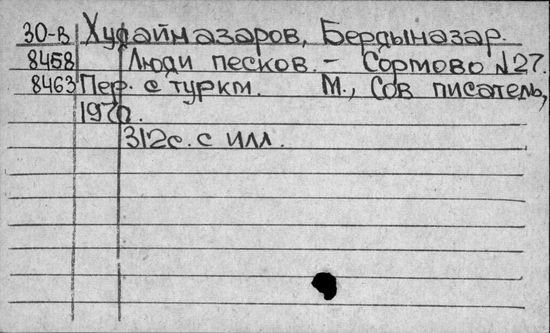 30-в Худайназаров, Бердыназар.
8458 Люди песков. - Сормово N27.
8463 Пер. с туркм. М., Сов писатель,
1970.
312с. с илл.